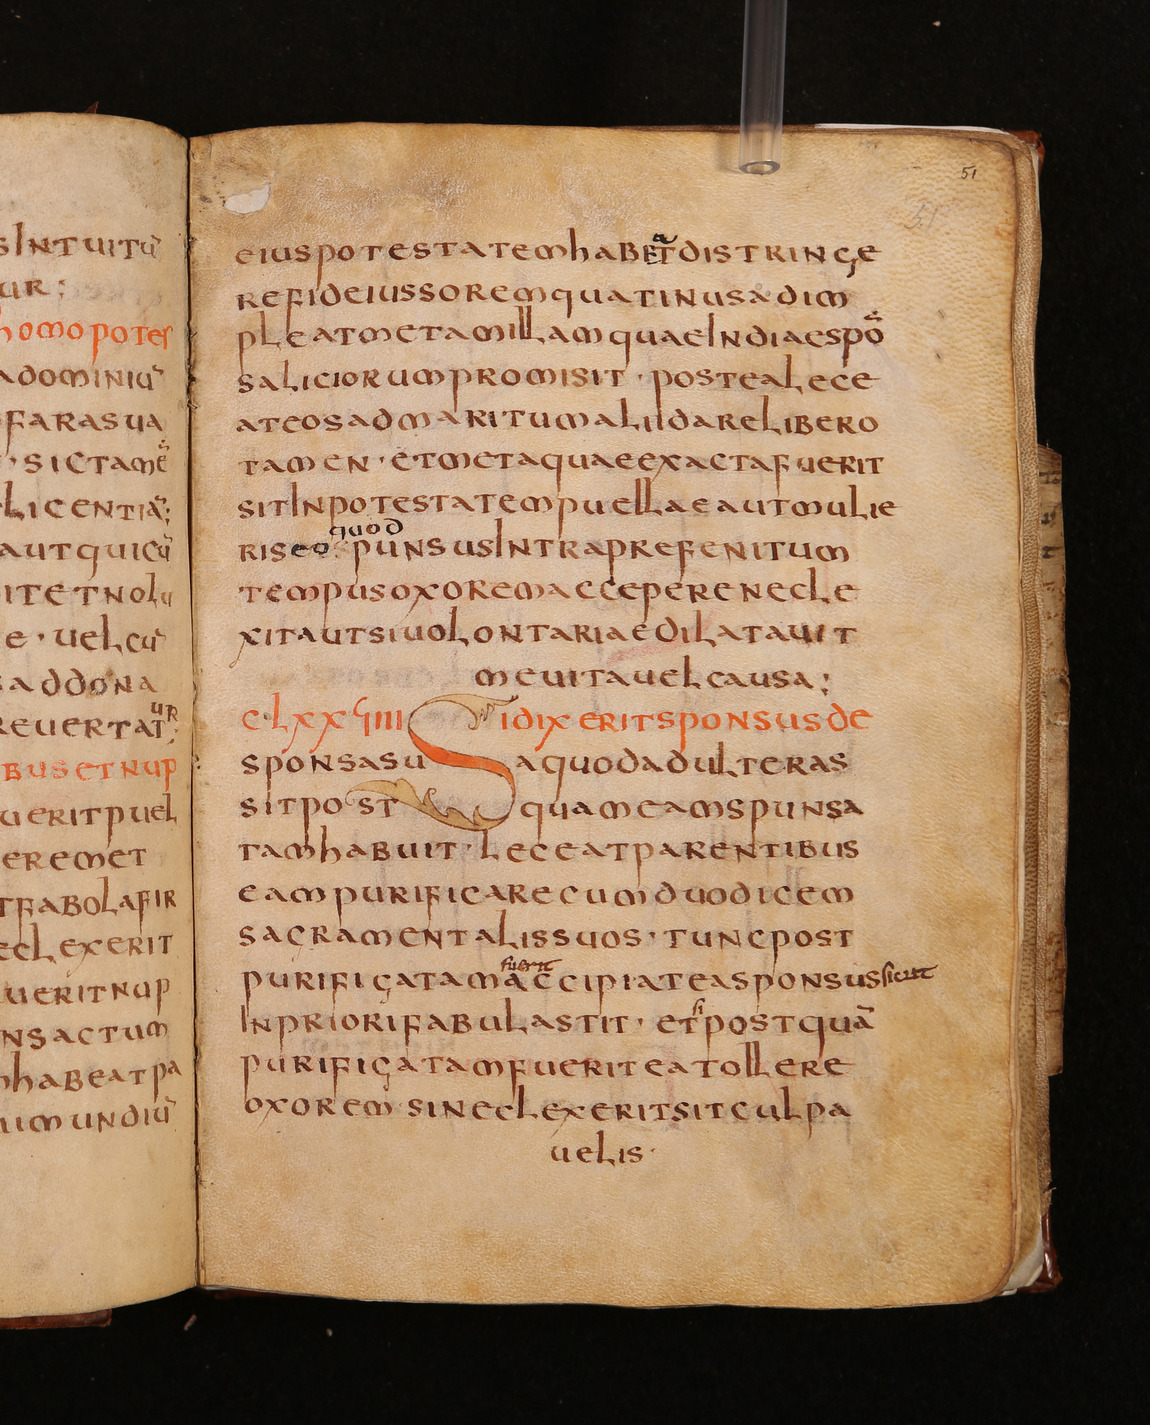 sintuitū
ur;
homo potes
adominiū
faRasua
·sictamē
licentiā;
autquicū
itetnolu
e·uelcū
addona
Reuertatur;
busetnup
ueritpuel
eRemet
tfabolafiR
eclexeRit
ueRitnup
nsactum
habeatpa
umundiū
51
51
eiuspotestatemhabeatdistRinge
Refideiussoremquatinusadim
pleatmetamillamquaeindiaespō
saliciorumpromisit·postealece
ateosadmaritumaliidareliberO
tamen·etmetaquaeexactafuerit
sitinpotestatempuellaeautmulie
Riseo quod spunsusintraprefenitum
tempusoxoremaccepereneclE
xitautsiuolontariaedilatauit
meuitauelcausa;
clxxuiiii Sidixeritsponsusde
sponsasuaquodadulteras
sitpostquameamspunsa
tamhabuit·leceatparentibus
eampurificarecumduodicem
sacramentalissuos·tuncpost
purificatam fuerit accipiateasponsus sicut
inpriorifabulastit·et si postquā
purificatamfueriteatollere
oxoremsineclexeritsitculpa
uelis·